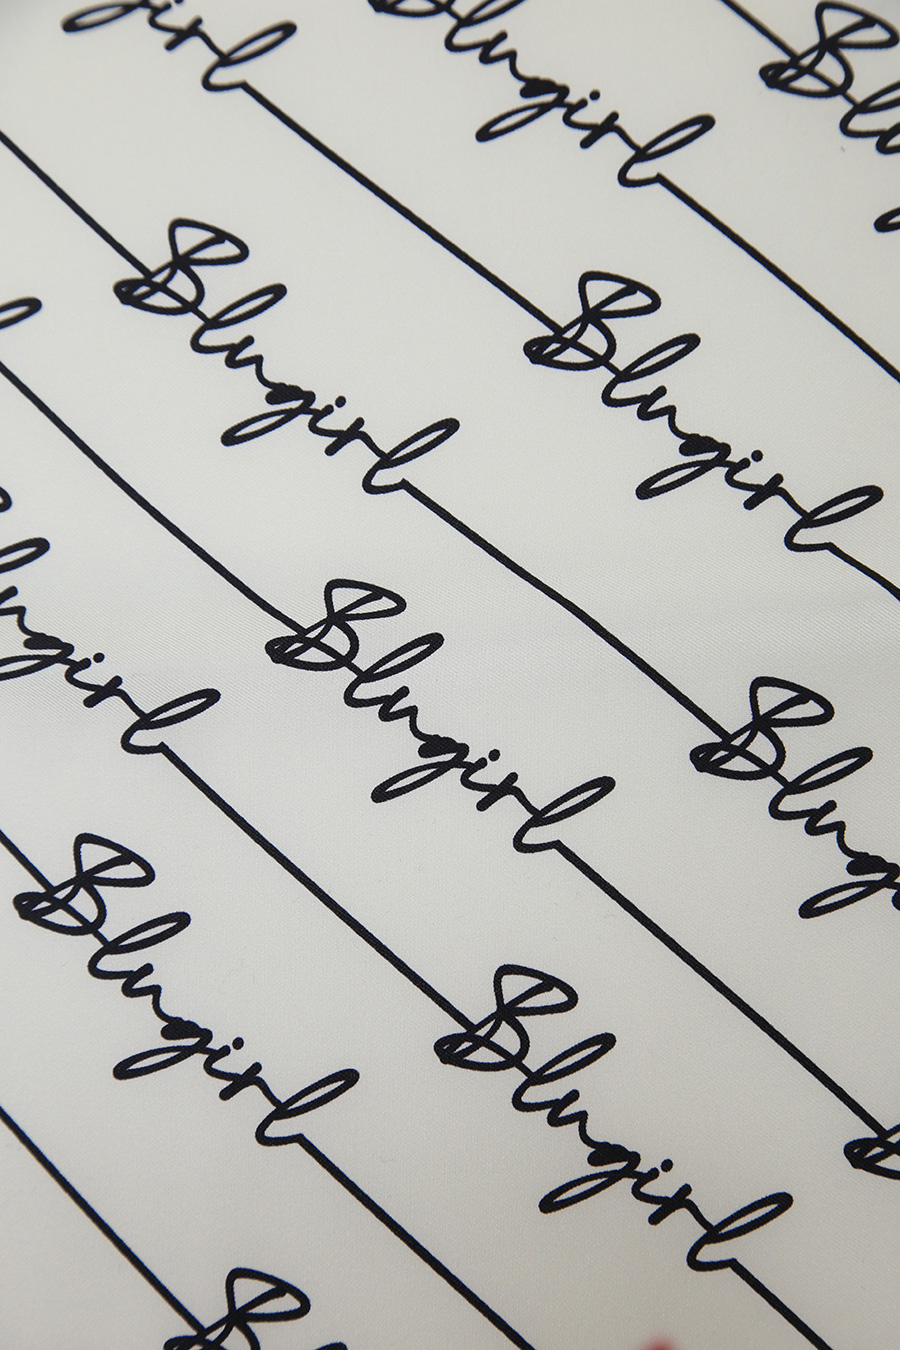 Bl
Blugirl
girl Blugirl
Blugirl Blug
l Blugirl B
lugirl Blugirl
Blugirl
B